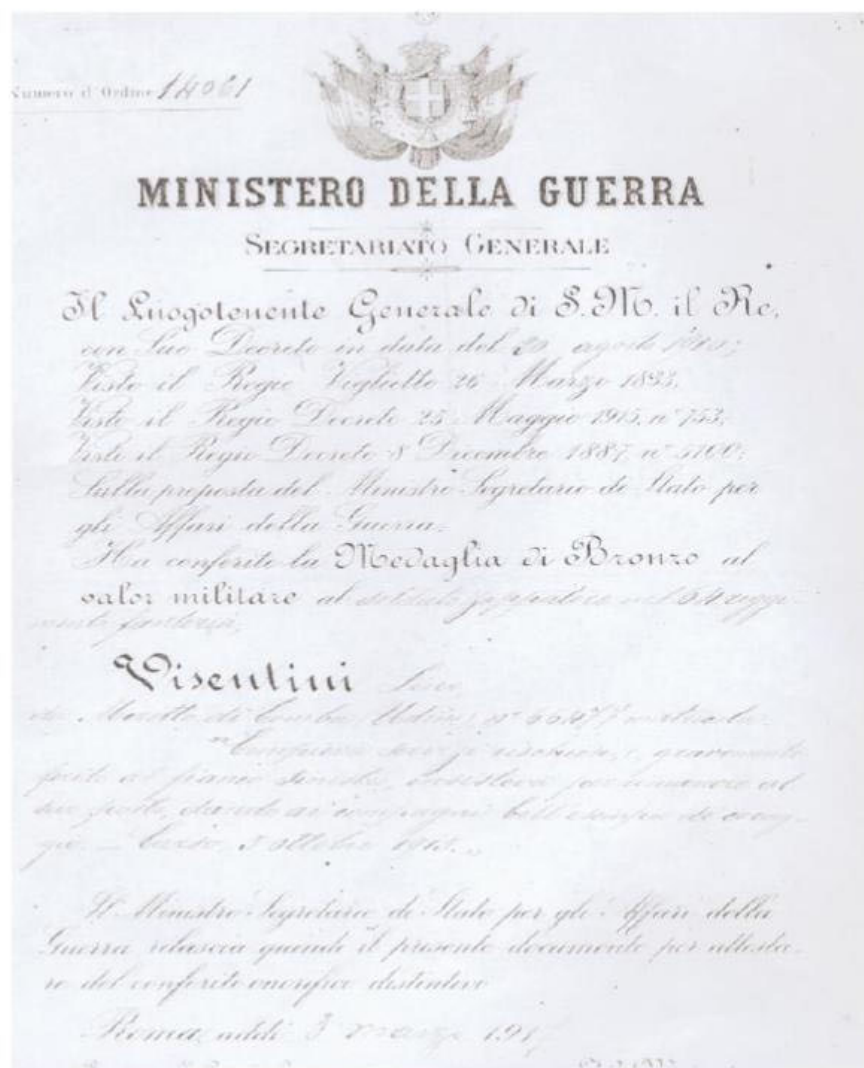 Numero d'Ordine 14061
MINISTERO DELLA GUERRA
SEGRETARIATO GENERALE
Il Luogotenente Generale di S. M. il Re,
con Suo Decreto in data del agosto
Visto il Regio Viglietto 26 Marzo 1833;
Visto il Regio Decreto 25 Maggio 1915, n° 753;
Visto il Regio Decreto 8 Dicembre 1887, n° 5100;
Sulla proposta del Ministro Segretario di Stato per
gli Affari della Guerra;
Ha conferito la Medaglia di Bronzo al
valor militare al soldato zappatore nel 64 reggi-
mento fanteria,
Visentini
da n° matricola
e, gravemente
ferito al fianco sinistro, insisteva per rimanere al
suo posto, dando ai compagni bell'esempio di corag-
gio. — Carso, ottobre
Il Ministro Segretario di Stato per gli Affari della
Guerra rilascia quindi il presente documento per attesta-
re del conferito onorifico distintivo
Roma, addì 3 marzo 191